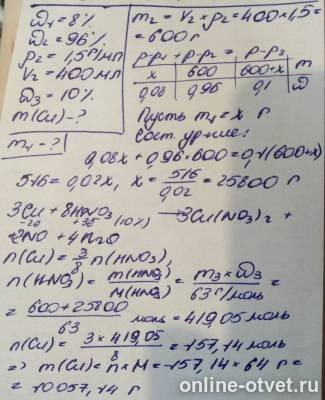 ω₁=8%
ω₂=96%
ρ₂=1,5г/мл
V₂=400мл
ω₃=10%
m(Cu)-?
m₁-?
m₂=V₂×ρ₂=400×1,5=
=600г
р-р₁ + р-р₂ = р-р₃
x | 600 | 600+x | m
0,08 | 0,96 | 0,1 | ω
Пусть m₁=x г
Сост. ур-ние:
0,08x+0,96·600=0,1(600+x)
516=0,02x, x=516/0,02=25800 г
3Cu+8HNO₃ (10%) →3Cu(NO₃)₂+
+2NO+4H₂O
n(Cu)=3/8 n(HNO₃),
n(HNO₃)=m(HNO₃)/M(HNO₃)=m₃×ω₃/63г/моль=
=600+25800/63 моль=419,05моль
n(Cu)=3×419,05/8=157,14моль
=> m(Cu)=n×M=157,14×64г=
=10057,14г
online-otvet.ru